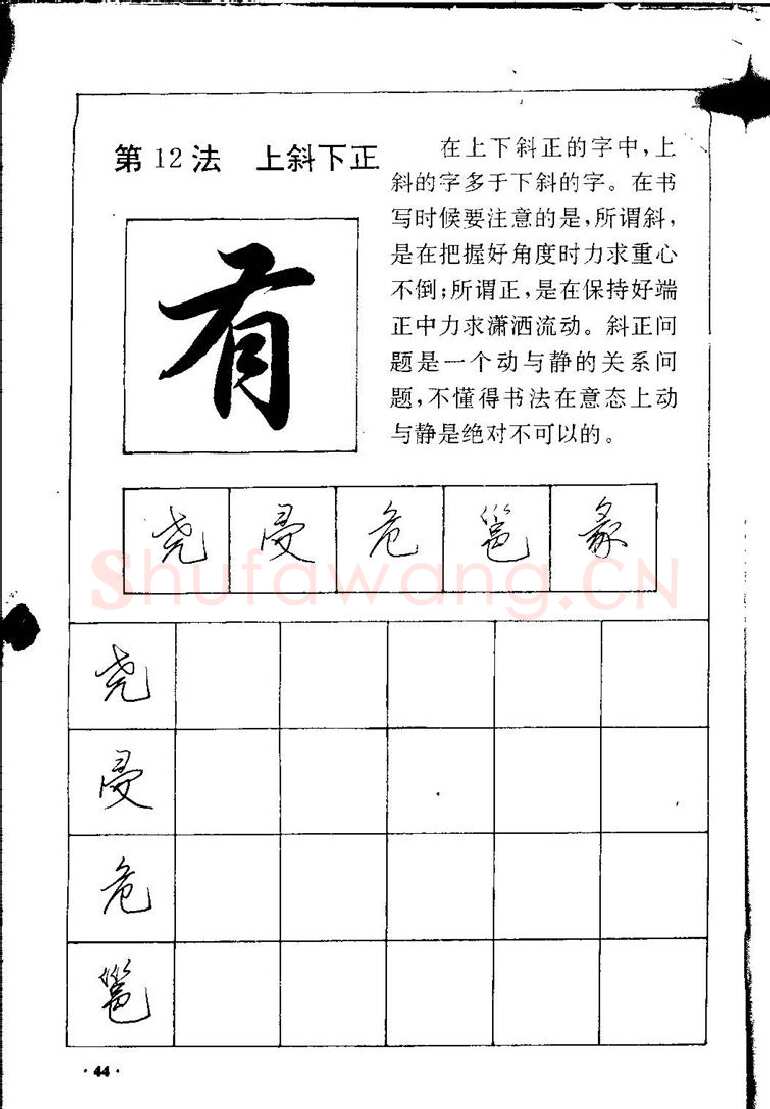 第12法 上斜下正
在上下斜正的字中，上
斜的字多于下斜的字。在书
写时候要注意的是，所谓斜，
是在把握好角度时力求重心
不倒；所谓正，是在保持好端
正中力求潇洒流动。斜正问
题是一个动与静的关系问
题，不懂得书法在意态上动
与静是绝对不可以的。
有
尧 危 邕 彖
Shufawang.CN
尧
危
邕
·44·